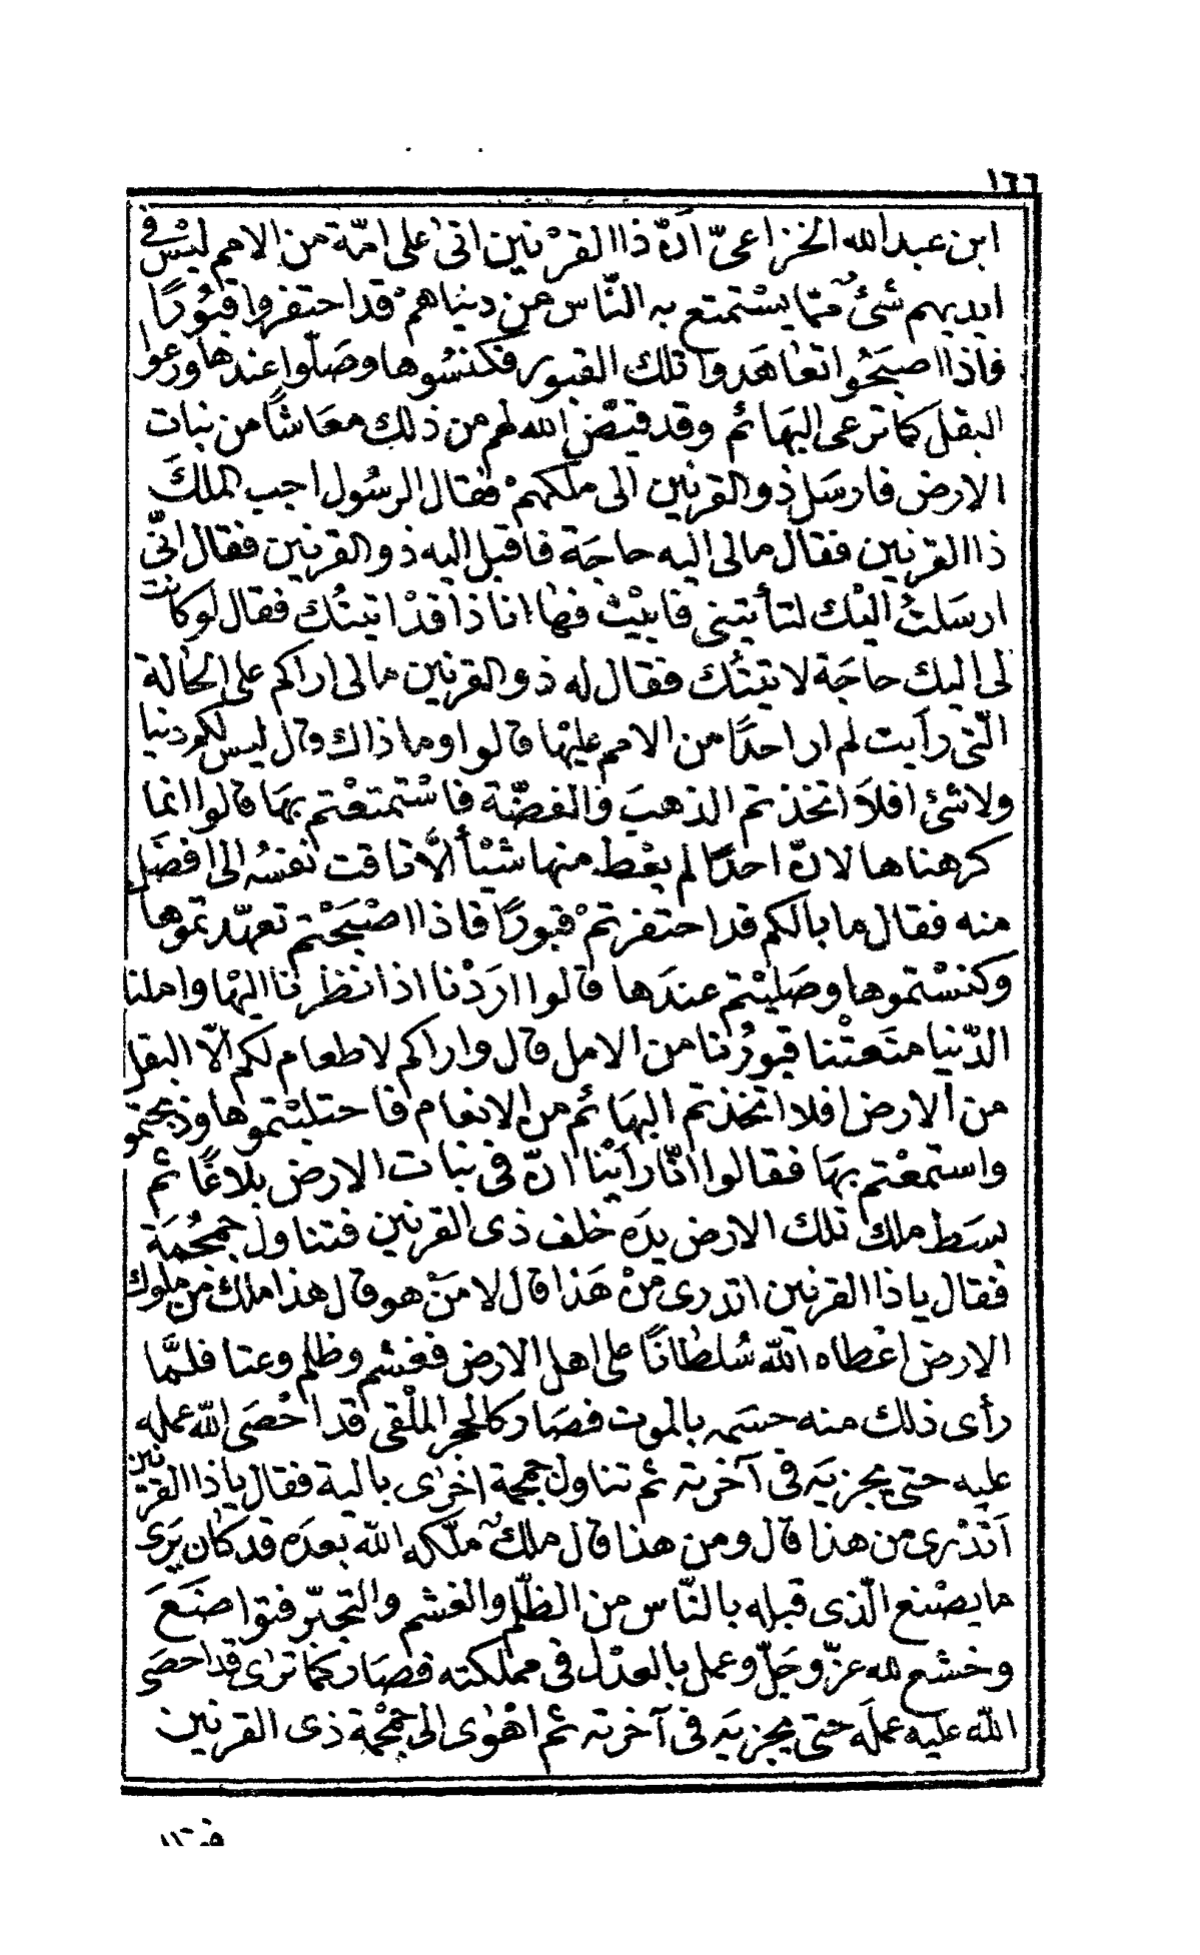 ١٦٦
ابن عبد الله الخزاعىّ انّ ذا القرْنين اتى على امّة من الامم ليْس فى
ايديهم شئ ممّا يسْتمتع به النّاس من دنياهمْ قد احتفروا قبُورًا
فاذا اصبَحُوا تعاهَدوا تلك القبور فكنسُوها وصَلّوا عندها ورعوا
البقلَ كما ترعى البهَائم وقد قيّض الله لهم من ذلك معَاشًا من نبات
الارض فارسَل ذو القرنين الى ملكهمْ فقال الرسُول اجب الملكَ
ذا القرنين فقال مالى اليه حاجَة فاقبل اليه ذو القرنين فقال انّى
ارسَلتُ اليْك لتأتينى فابيْت فها انا ذا قدْ اتيتُك فقال لو كانت
لى اليك حاجَة لاتيتُك فقال له ذو القرنين مالى اراكم على الحالة
الّتى رأيت لم ار احدًا من الامم عليْها قالوا وما ذاك قال ليس لكم دنيا
ولا شئ افلاَ اتخذتم الذهبَ والفضّة فاسْتمتعْتم بهَا قالوا انما
كرهناها لانّ احدًا لم يعْط منها شيْأ الاَّ تاقت نفسُه الى افضَل
منه فقال ما بالكم قد احتفرتمْ قبورًا فاذا اصْبَحْتم تعهّدتموها
وكنسْتموها وصَليْتم عندَها قالوا ارَدْنا اذا نظرنا اليْها واملنا
الدّنيا منَعتْنا قبورُنا من الامل قال واراكم لا طعام لكم الاّ البقل
من الارض افلا اتخذتم البهَائم من الانعام فاحتلبْتموها وذبحتمو
واستمعْتم بهَا فقالوا انّا رأيْنا انّ فى نبات الارض بلاغًا ثم
بسَط ملك تلك الارض يدَه خلف ذى القرنين فتناول جمجُمَة
فقال يا ذا القرنين اتدرى منْ هَذا قال لا مَنْ هو قال هذا ملك من ملوك
الارض اعْطاه الله سُلطانًا على اهل الارض فغشم وظلم وعتا فلمَّا
رأى ذلك منه حسَمه بالموت فصَار كالحجر الملْقى قد احْصَى الله عمله
عليه حتى يجزيَه فى آخرته ثم تناول جمجمة اخرى بالية فقال يا ذا القرنين
اَتدْرى من هذا قال ومن هذا قال ملك ملّكه الله بعدَه قد كان يَرى
ما يصْنع الّذى قبله بالنّاس من الظّلم والغشم والتجبّر فتواضَعَ
وخشع لله عزّ وجَلّ وعمل بالعدْل فى مملكته فصَار كما ترى قد احصَى
الله عليه عملَه حتى يجزيَه فى آخرته ثم اهْوى الى جمجْمة ذى القرنين